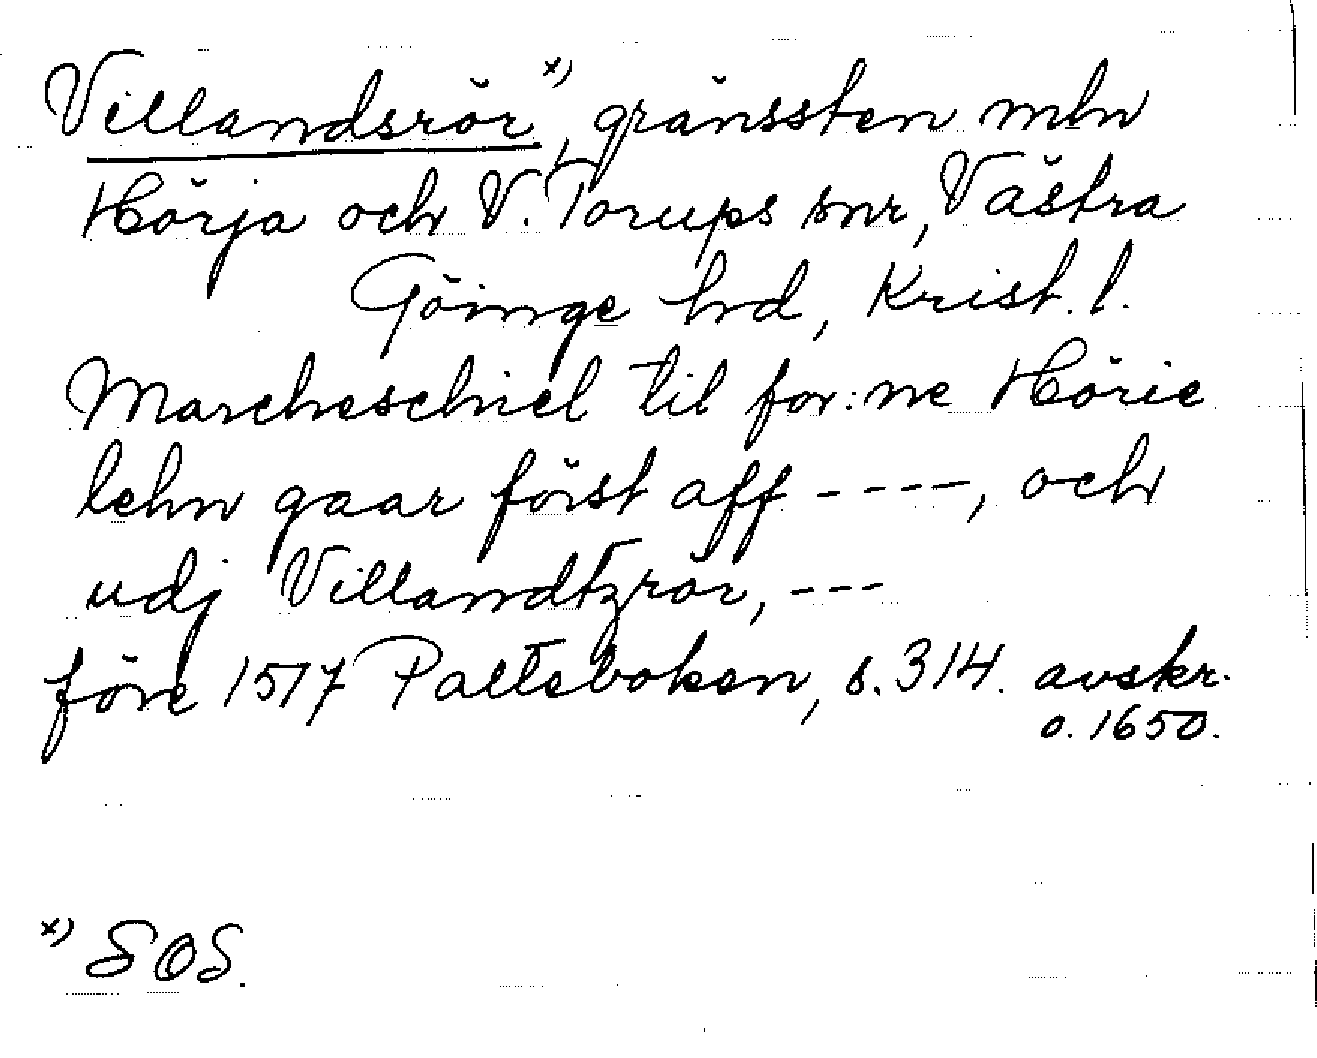 Villandsrör x), gränssten mln
Hörja och V. Torups snr, Västra
Göinge hrd, Krist. l.
Marcheschiel til for:ne Hörie
lehn gaar först aff ----, och
udj Villandtzrör, ---
före 1517 Paltebokan, s. 314. avskr.
o. 1650.
x) SOS.